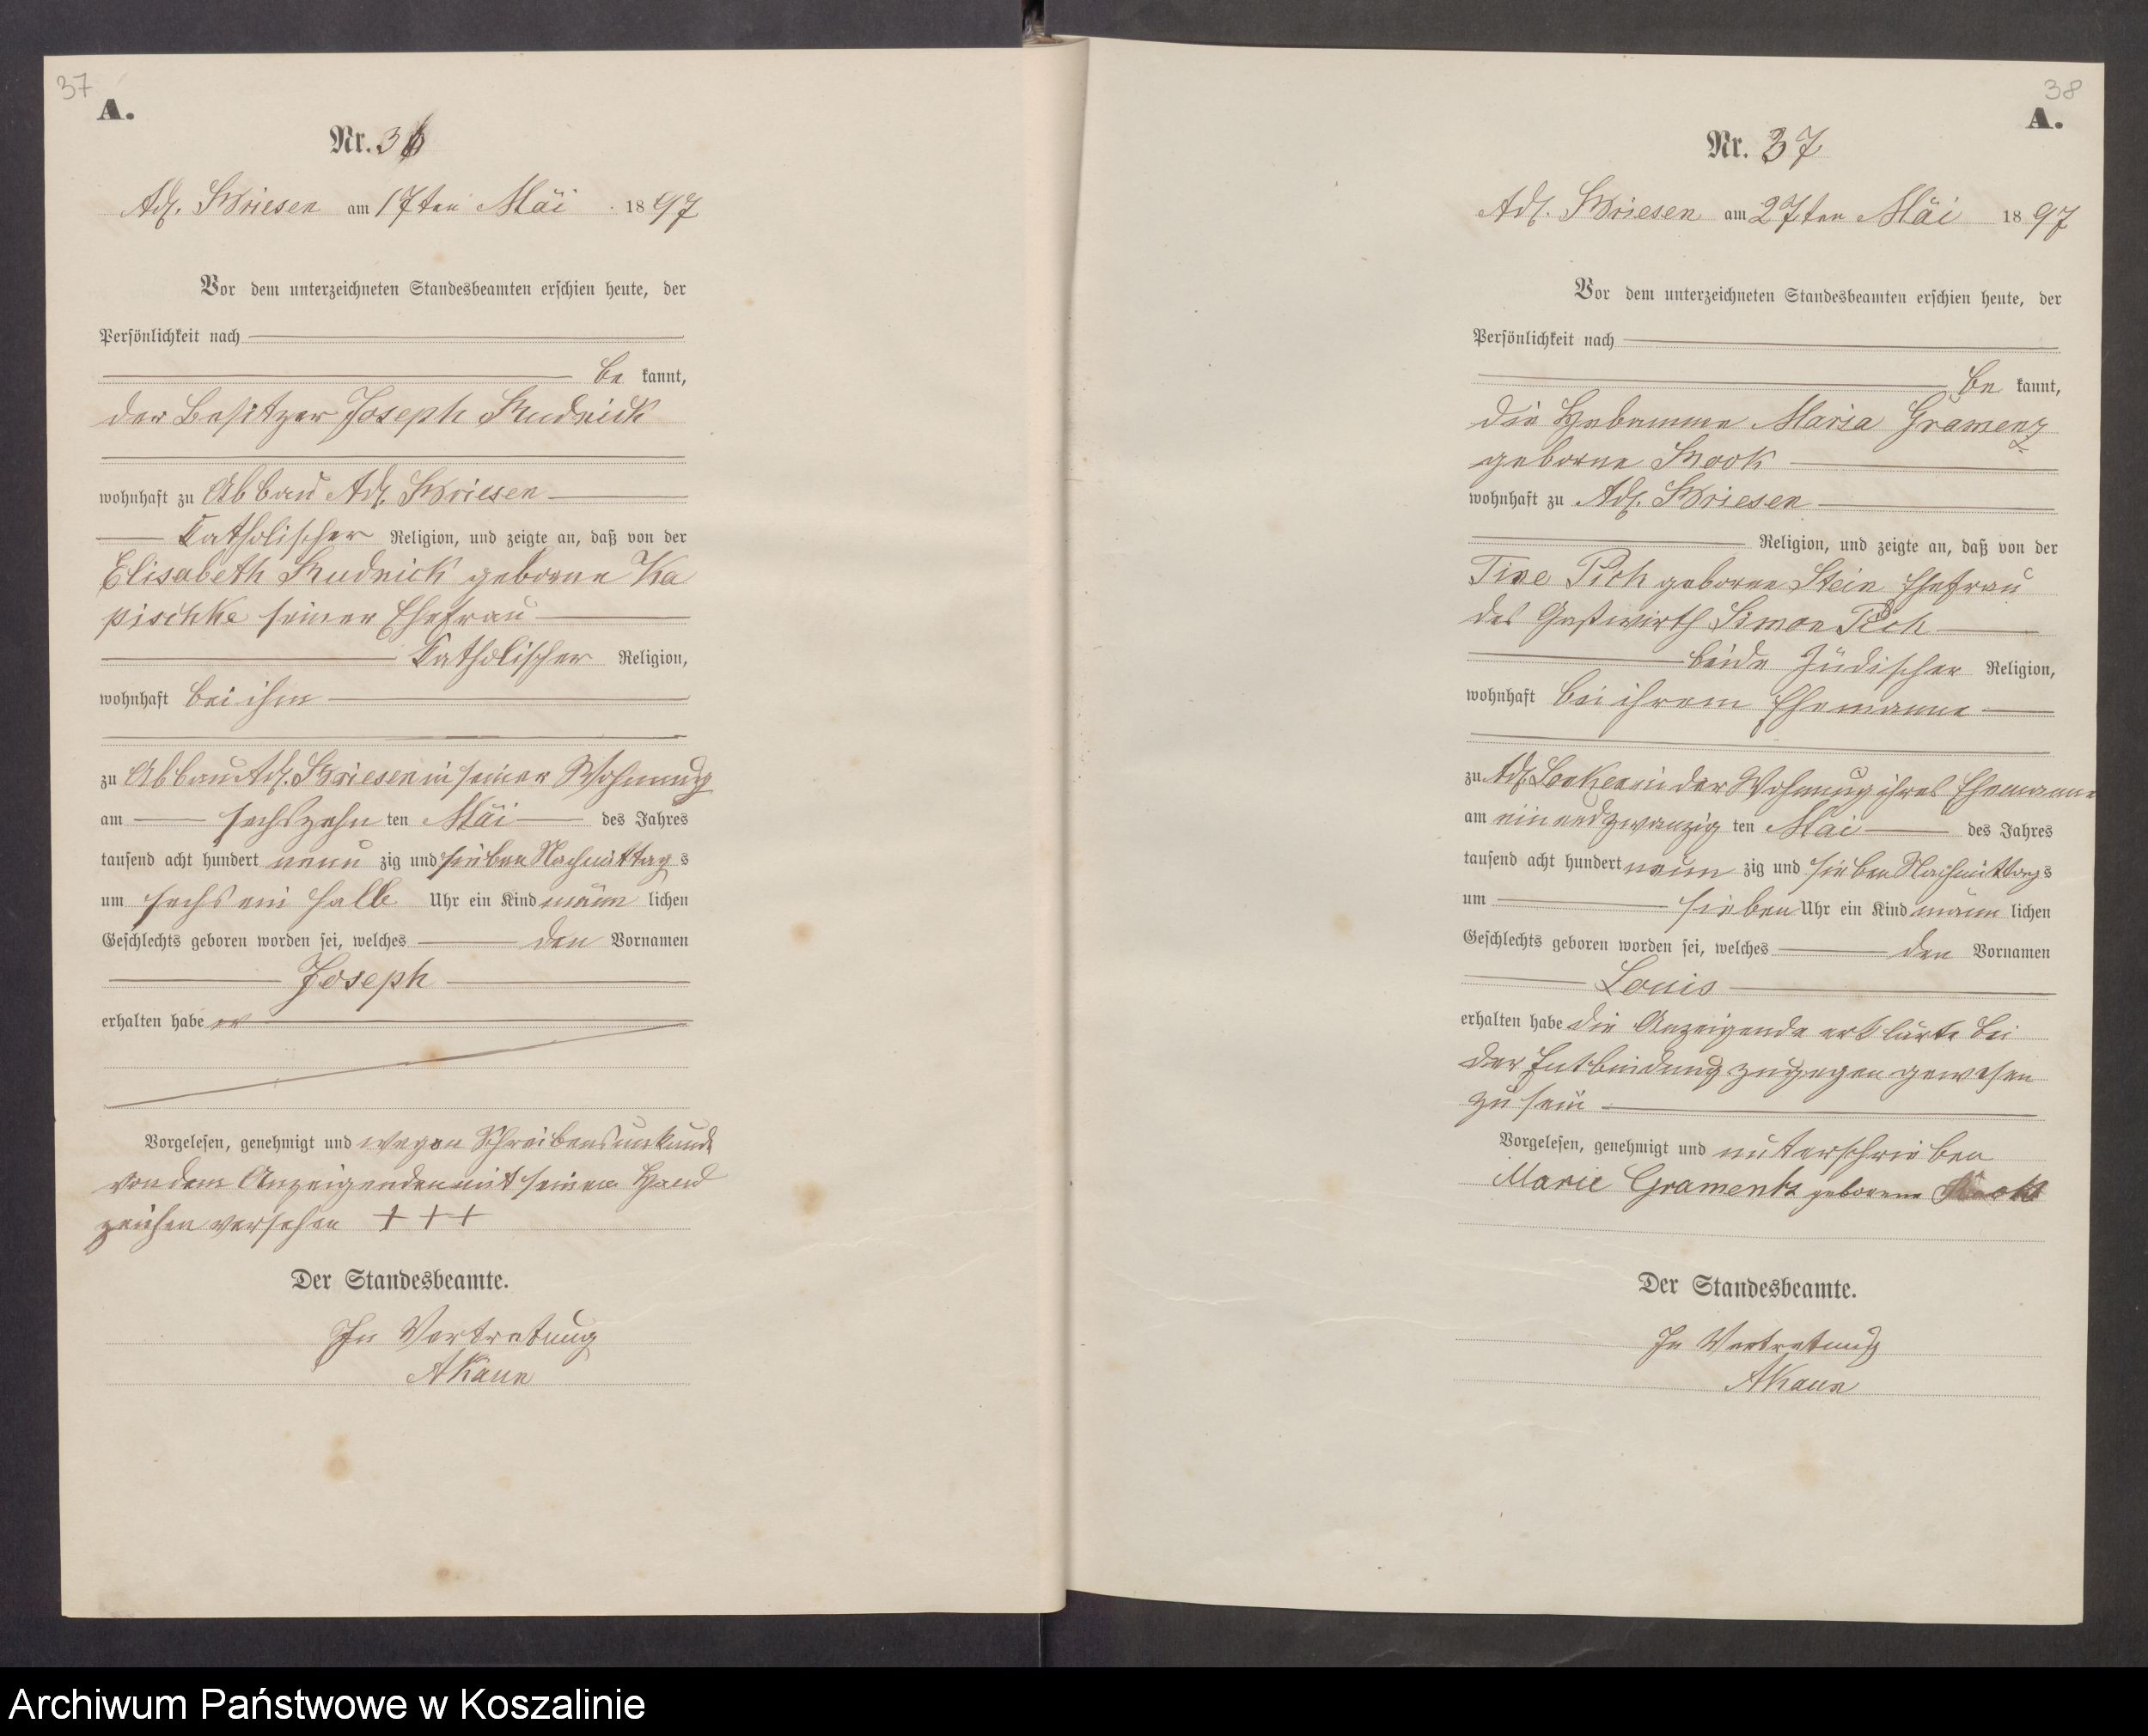 37
A.
Nr. 36
Adl. Briesen am 17ten Mäi 1897
Vor dem unterzeichneten Standesbeamten erschien heute, der
Persönlichkeit nach
be kannt,
der Besitzer Joseph Rudnick
wohnhaft zu Abbau Adl. Briesen
Katholischer Religion, und zeigte an, daß von der
Elisabeth Rudnick geborne Ka
pischke seiner Ehefrau
Katholischer Religion,
wohnhaft bei ihm
zu Abbau Adl. Briesen in seiner Wohnung
am sechszehn ten Mäi des Jahres
tausend acht hundert neun zig und sieben Nachmittag s
um sechs ein halb Uhr ein Kind männ lichen
Geschlechts geboren worden sei, welches den Vornamen
Joseph
erhalten habe
Vorgelesen, genehmigt und wegen Schreibensunkunde
von dem Anzeigenden mit seinem Hand
zeichen versehen + + +
Der Standesbeamte.
In Vertretung
AKaun
38
A.
Nr. 37
Adl. Briesen am 27ten Mäi 1897
Vor dem unterzeichneten Standesbeamten erschien heute, der
Persönlichkeit nach
be kannt,
die Hebamme Maria Gramenz
geborne
wohnhaft zu Adl. Briesen
Religion, und zeigte an, daß von der
Tine Pich geborne Stein Ehefrau
des Gastwirth Simon Pich
beide Jüdischer Religion,
wohnhaft bei ihrem Ehemanne
zu Adl. in der Wohnung ihres Ehemannes
am einundzwanzig ten Mai des Jahres
tausend acht hundert neun zig und sieben Nachmittags s
um sieben Uhr ein Kind männ lichen
Geschlechts geboren worden sei, welches den Vornamen
Louis
erhalten habe die Anzeigende erklärte bei
der Entbindung zugegen gewesen
zu sein
Vorgelesen, genehmigt und unterschrieben
Marie Gramentz geborene
Der Standesbeamte.
In Vertretung
AKaun
Archiwum Państwowe w Koszalinie